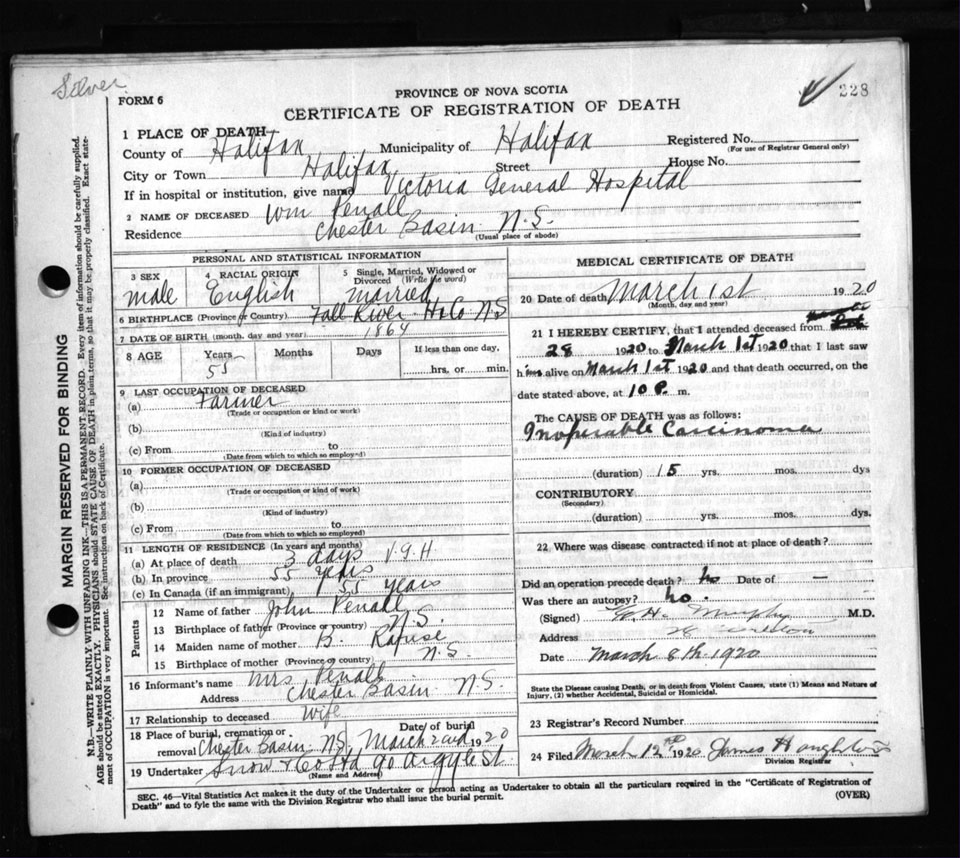 Silver
228
PROVINCE OF NOVA SCOTIA
FORM 6
CERTIFICATE OF REGISTRATION OF DEATH
1 PLACE OF DEATH
County of Halifax Municipality of Halifax Registered No.
(For use of Registrar General only)
City or Town Halifax Street House No.
If in hospital or institution, give name Victoria General Hospital
2 NAME OF DECEASED Wm Penall
Residence Chester Basin N.S.
(Usual place of abode)
PERSONAL AND STATISTICAL INFORMATION
3 SEX 4 RACIAL ORIGIN 5 Single, Married, Widowed or Divorced (Write the word)
male English married
6 BIRTHPLACE (Province or Country) Fall River Ha Co N S
7 DATE OF BIRTH (month, day and year) 1864
8 AGE Years Months Days If less than one day,
55 hrs. or min.
9 LAST OCCUPATION OF DECEASED
(a) Farmer
(Trade or occupation or kind or work)
(b)
(Kind of industry)
(c) From to
(Date from which to which so employed)
10 FORMER OCCUPATION OF DECEASED
(a)
(Trade or occupation or kind of work)
(b)
(Kind of industry)
(c) From to
(Date from which to which so employed)
11 LENGTH OF RESIDENCE (In years and months)
(a) At place of death 3 days V.G.H
(b) In province 55 years
(c) In Canada (if an immigrant) 55 years
Parents
12 Name of father John Penall
13 Birthplace of father (Province or country) N.S.
14 Maiden name of mother B. Rafuse
15 Birthplace of mother (Province or country) N.S.
16 Informant's name Mrs Penall
Address Chester Basin N.S.
17 Relationship to deceased Wife
18 Place of burial, cremation or removal Chester Basin N.S. Date of burial March 2nd 1920
19 Undertaker Snow & Co Ltd 90 Argyle St
(Name and Address)
MEDICAL CERTIFICATE OF DEATH
20 Date of death March 1st 1920
(Month, day and year)
21 I HEREBY CERTIFY, that I attended deceased from
28 1920 to March 1st 1920 that I last saw
him alive on March 1st 1920 and that death occurred, on the
date stated above, at 10 P. m.
The CAUSE OF DEATH was as follows:
Inoperable Carcinoma
(duration) 15 yrs. mos. dys
CONTRIBUTORY
(Secondary)
(duration) yrs. mos. dys.
22 Where was disease contracted if not at place of death?
Did an operation precede death? no Date of —
Was there an autopsy? no.
(Signed) Murphy M.D.
Address 28 Carleton
Date March 8th 1920
State the Disease causing Death, or in death from Violent Causes, state (1) Means and Nature of
Injury, (2) whether Accidental, Suicidal or Homicidal.
23 Registrar's Record Number
24 Filed March 12 1920 James
Division Registrar
SEC. 46—Vital Statistics Act makes it the duty of the Undertaker or person acting as Undertaker to obtain all the particulars required in the "Certificate of Registration of
Death" and to fyle the same with the Division Registrar who shall issue the burial permit. (OVER)
MARGIN RESERVED FOR BINDING
N.B.—WRITE PLAINLY WITH UNFADING INK—THIS IS A PERMANENT RECORD. Every item of information should be carefully supplied.
AGE should be stated EXACTLY. PHYSICIANS should STATE CAUSE OF DEATH in plain terms, so that it may be properly classified. Exact state-
ment of OCCUPATION is very important. See instructions on back of Certificate.